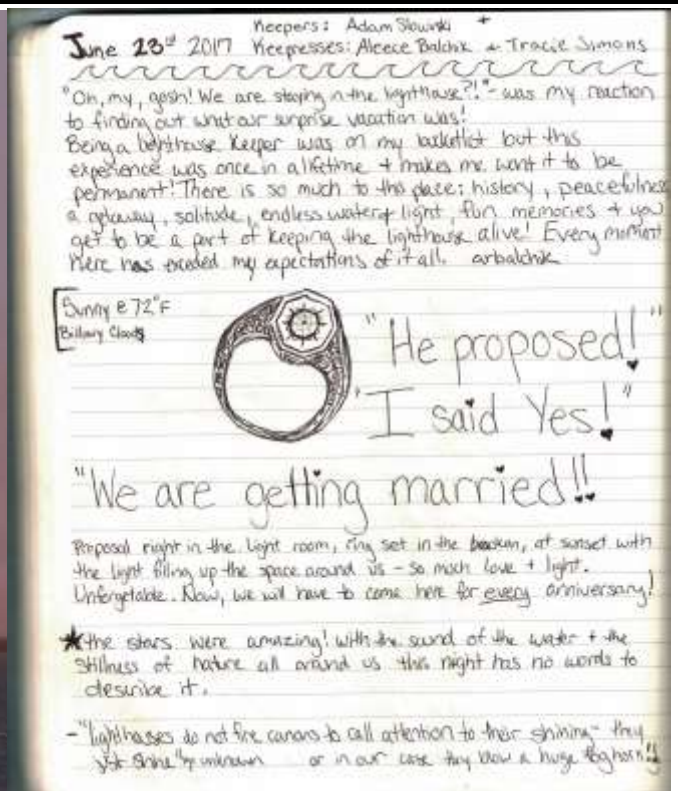 Keepers: Adam Slowski +
June 23rd 2017 Keepresses: Aleece Balchik + Tracie Simons
"Oh, my, gosh! We are staying in the lighthouse?!" - was my reaction
to finding out what our surprise vacation was!
Being a lighthouse keeper was on my bucketlist but this
experience was once in a lifetime + makes me want it to be
permanent! There is so much to this place: history, peacefulness
a getaway, solitude, endless water + light, fun memories + you
get to be a part of keeping the lighthouse alive! Every moment
here has exceded my expectations of it all. arbalchik
Sunny @ 72°F
Billowy Clouds
"He proposed!"
"I said Yes!"
"We are getting married!!
Proposal right in the light room, ring set in the beacon, at sunset with
the light filling up the space around us - so much love + light.
Unforgetable. Now, we will have to come here for every anniversary!
★the stars were amazing! with the sound of the water + the
stillness of nature all around us this night has no words to
describe it.
- "lighthouses do not fire canons to call attention to their shining - they
just shine" by unknown or in our case they blow a huge foghorn!!